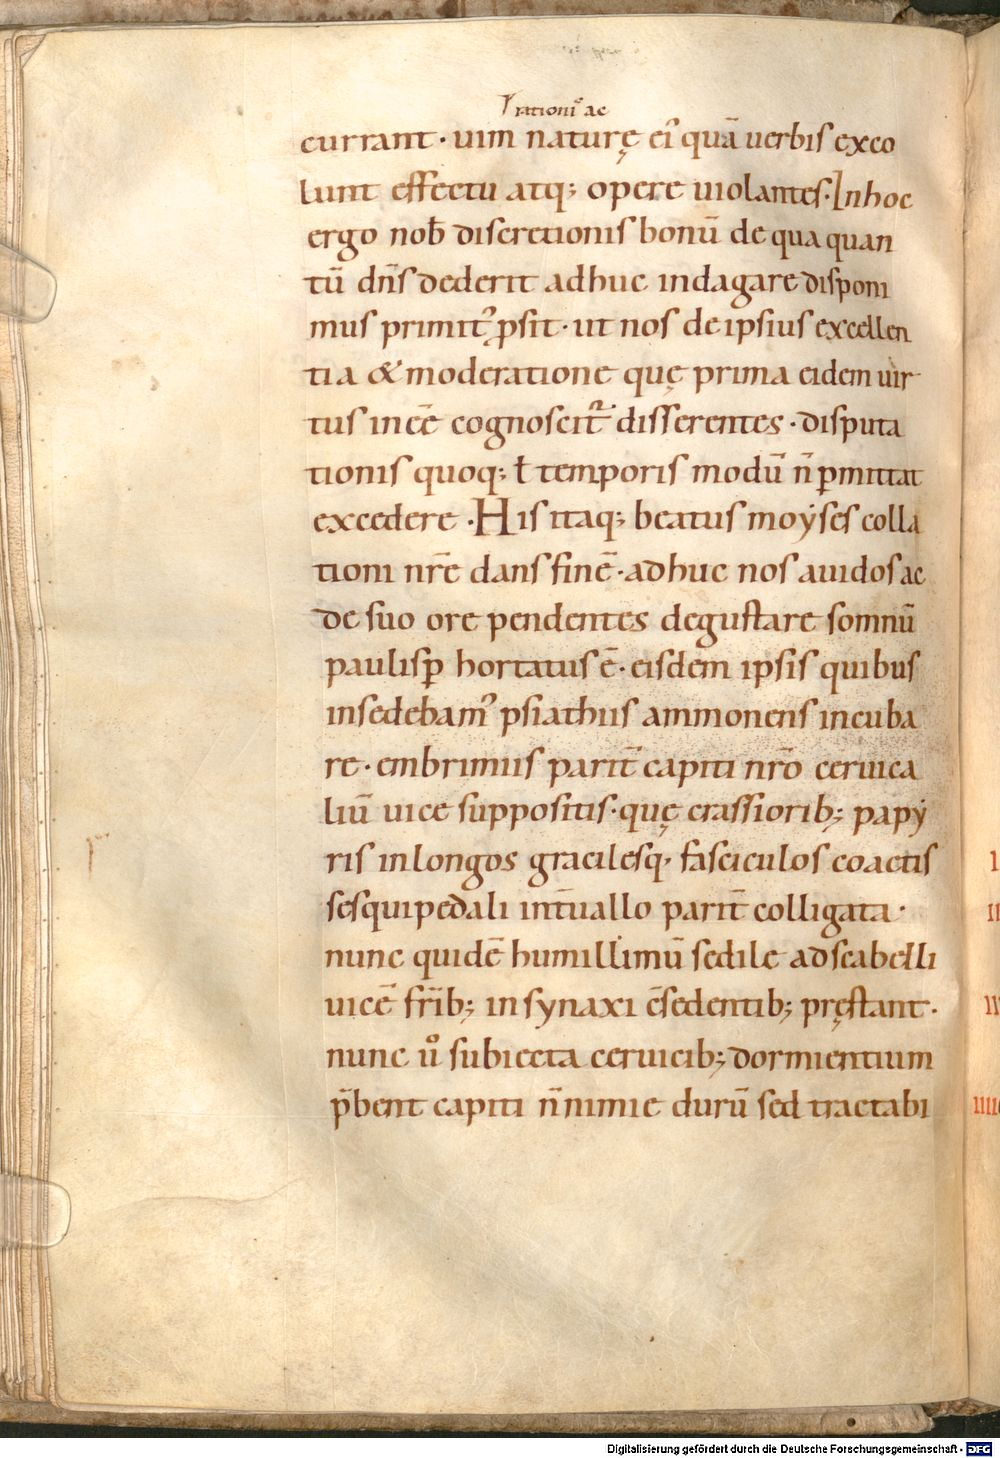 rationi᷒ ac
currant · uim naturę ei᷒ quā uerbis exco
lunt effectu atq; opere uiolantes · In hoc
ergo nob̄ discretionis bonū de qua quan
tū dn̄s dederit adhuc indagare disponi
mus primit᷒ ꝓsit · ut nos de ipsius excellen
tia & moderatione quę prima eidem uir
tus inēē cognoscit᷑ disserentes · disputa
tionis quoq; ł temporis modū n̄ ꝑmittat
excedere · His itaq; beatus moẏses colla
tioni nr̄ē dans finē · adhuc nos auidos ac
de suo ore pendentes degustare somnū
paulisꝑ hortatus ē · eisdem ipsis quibus
insedebam᷒ psiathiis ammonens incuba
re · embrimiis parit̄ capiti nr̄o ceruica
liū uice suppositis · quę crassiorib; papẏ
ris in longos gracilesq, fasciculos coactis
sesquipedali int̄uallo parit̄ colligata ·
nunc quidē humillimū sedile ad scabelli
uicē fr̄ib; in synaxi c̄sedentib; pręstant ·
nunc ů subiecta ceruicib; dormientium
p̄bent capiti n̄ nimie durū sed tractabi
I
II
Digitalisierung gefördert durch die Deutsche Forschungsgemeinschaft - DFG